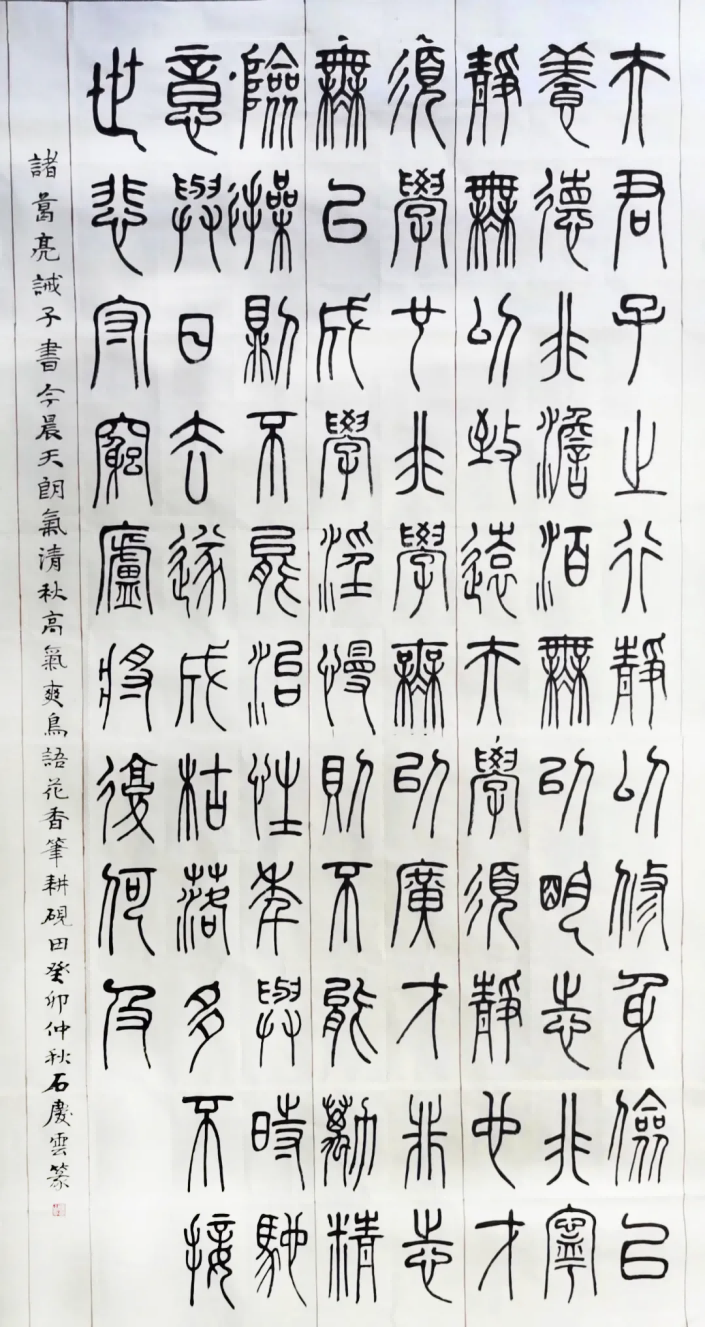 夫君子之行靜以修身儉以
養德非澹泊無以明志非寧
靜無以致遠夫學須靜也才
須學也非學無以廣才非志
無以成學淫慢則不能勱精
險躁則不能治性年與時馳
意與日去遂成枯落多不接
世悲守窮廬將復何及
諸葛亮誡子書今晨天朗氣清秋高氣爽鳥語花香筆耕硯田癸卯仲秋石慶雲篆